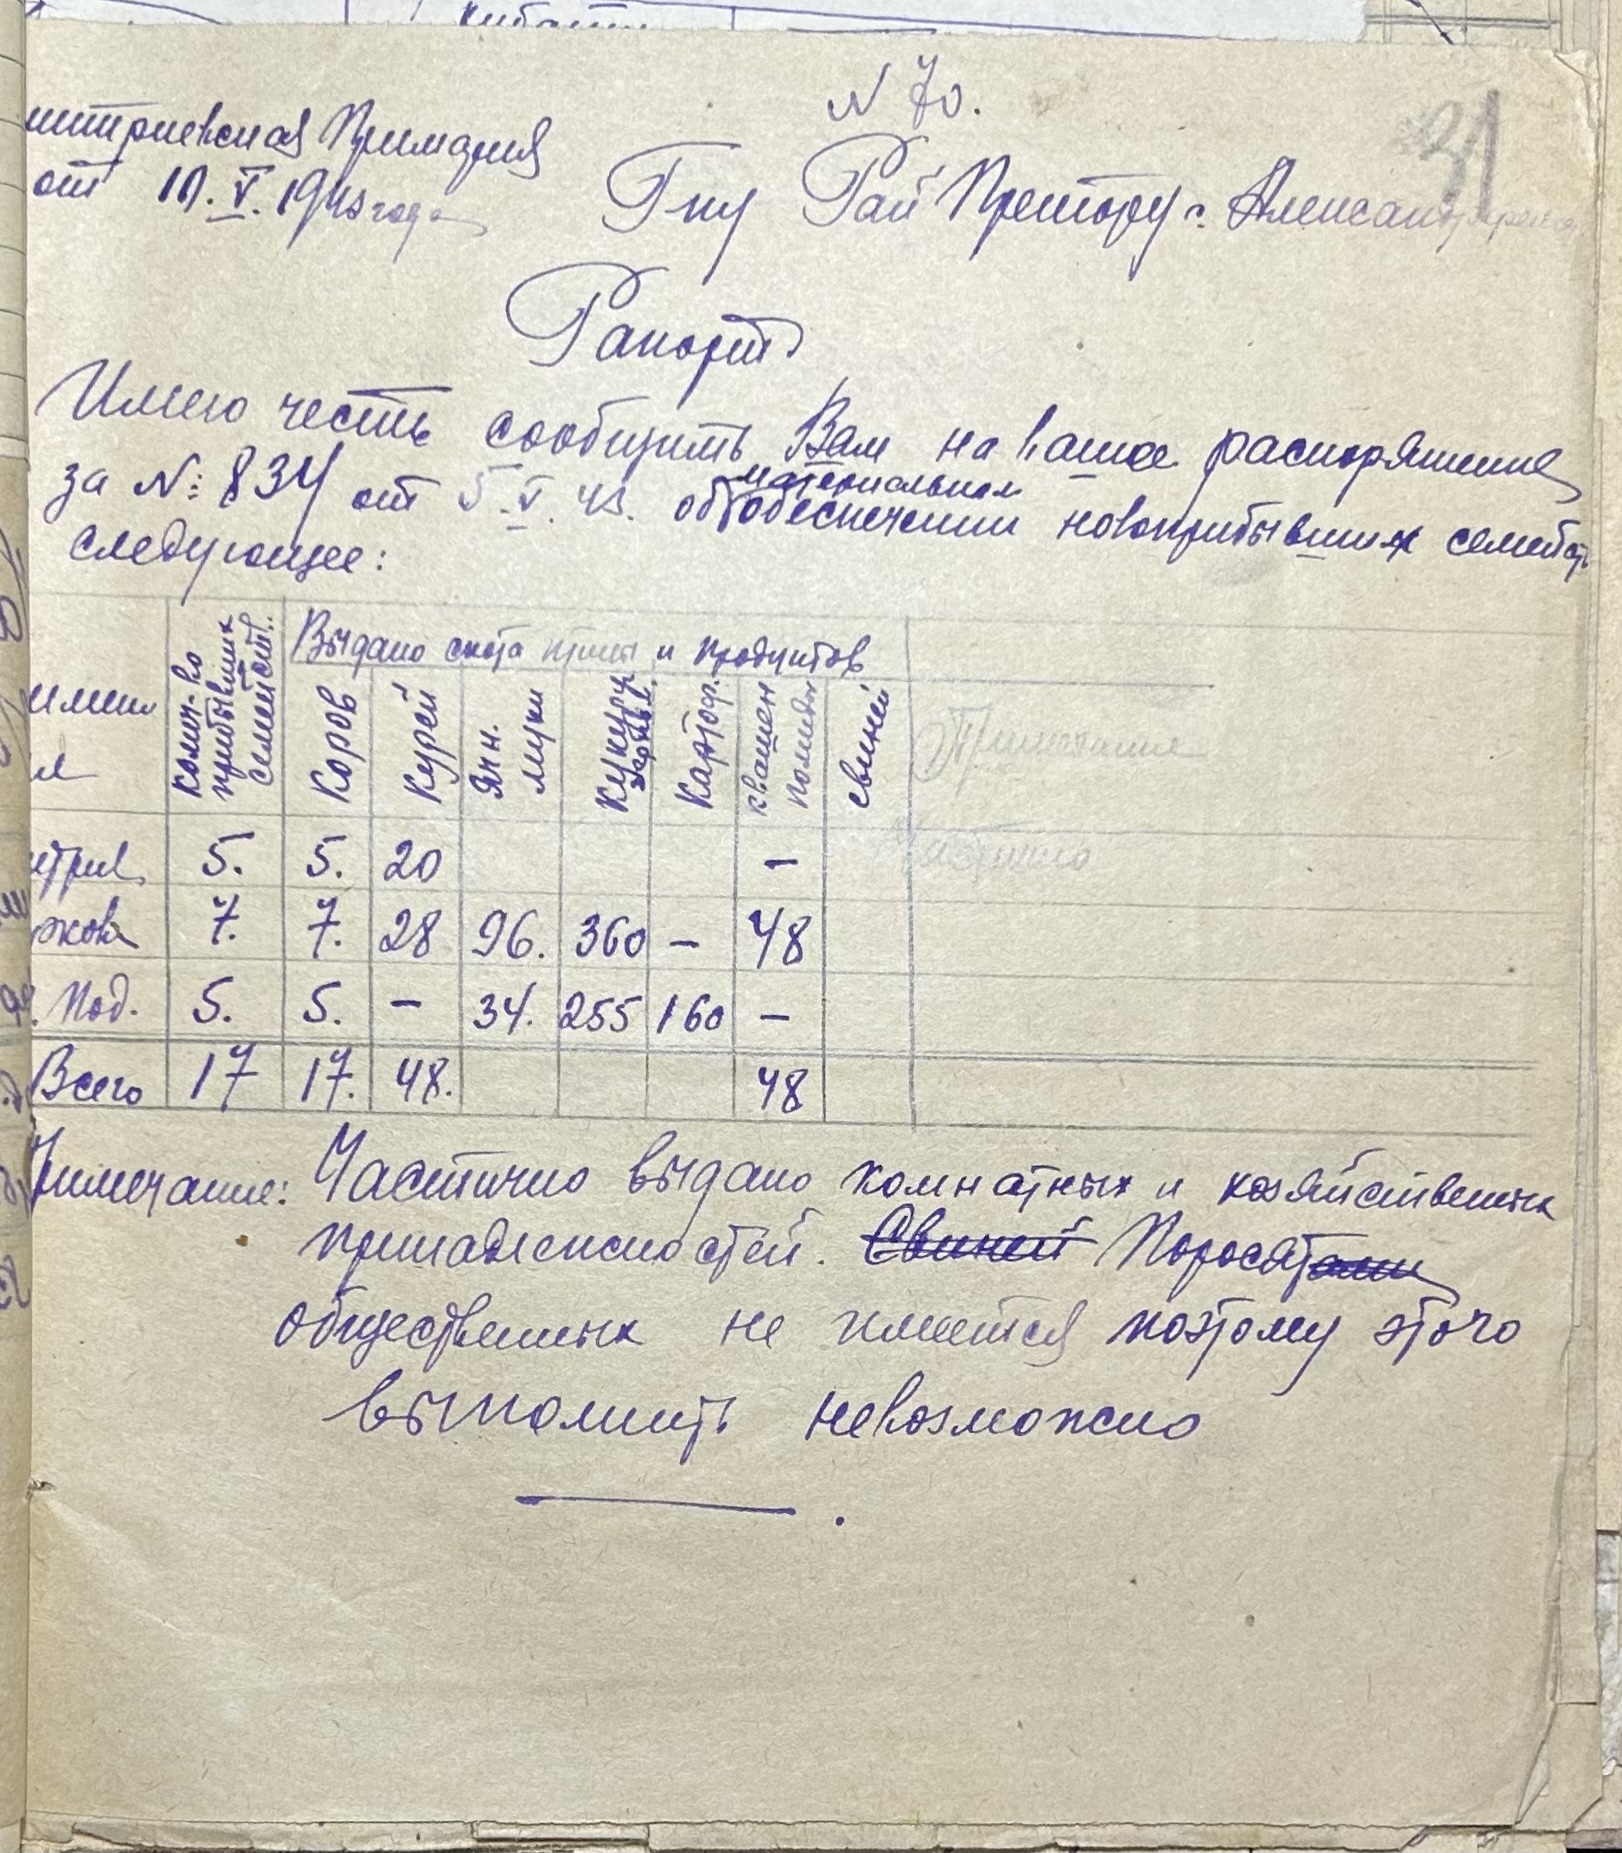 N 70.
31
итриевская Примария
от 10.V.1943 года
Г-ну Рай Претору г. Александ
Рапорт
Имею честь сообщить Вам на ваше распоряжение
за №: 834 от 5.V.43. об материальном обеспечении новоприбывших семейств
следующее:
колич-во прибывших семейств.
Выдано скота птицы и продуктов
Коров
Курей
Ячн. муки
Кукуру
Картоф.
квашен помидор
свиней
Примечание
етрив 5. 5. 20 – Частично
жова 7. 7. 28 96. 360 – 48
Под. 5. 5. – 34. 255 160 –
Всего 17 17. 48. 48
Примечание: Частично выдано комнатных и хозяйственных
принадлежностей. Свиней Поросят
общественных не имеется поэтому этого
выполнить невозможно